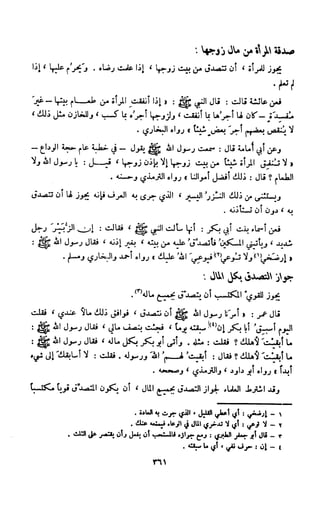 صدقة المرأة من مال زوجها :
يجوز للمرأة أن تتصدق من بيت زوجها إذا علمت رضاه . ويحرم عليها ، إذا
لم تعلم .
فعن عائشة قالت : قال النبي ﷺ : « إذا أنفقت المرأة من طعام بيتها – غير
مفسدة – كان لها أجرها بما أنفقت ، ولزوجها أجره بما كسب ، وللخازن مثل ذلك ،
لا ينقص بعضهم أجر بعض شيئاً » رواه البخاري .
وعن أبي أمامة قال : سمعت رسول الله ﷺ يقول – في خطبة عام حجة الوداع –
« لا تنفق المرأة شيئاً من بيت زوجها إلا بإذن زوجها ، قيل : يا رسول الله ولا
الطعام ؟ قال : ذلك أفضل أموالنا » رواه الترمذي وحسنه .
ويستثنى من ذلك النزر اليسير ، الذي جرى به العرف فإنه يجوز لها أن تتصدق
به ، دون أن تستأذنه .
فعن أسماء بنت أبي بكر : أنها سألت النبي ﷺ ، فقالت : إن الزبير رجل
شديد ، ويأتيني المسكين فأتصدق عليه من بيته ، بغير إذنه ، فقال رسول الله ﷺ :
« إرضخي(١) ولا توعي(٢) فيوعي الله عليك » رواه أحمد والبخاري ، ومسلم .
جواز التصدق بكل المال :
يجوز للقوي المكتسب أن يتصدق بجميع ماله(٣) .
قال عمر : « أمرنا رسول الله ﷺ أن نتصدق ، فوافق ذلك مالاً عندي ، فقلت
اليوم أسبق أبا بكر إن(٤) سبقته يوماً ، فجئت بنصف مالي ، فقال رسول الله ﷺ :
ما أبقيت لأهلك ؟ فقلت : مثله . وأتى أبو بكر بكل ماله ، فقال رسول الله ﷺ :
ما أبقيت لأهلك ؟ فقال : أبقيت لهم الله ورسوله . فقلت : لا أسابقك إلى شيء
أبداً » رواه أبو داود ، والترمذي ، وصححه .
وقد اشترط العلماء لجواز التصدق بجميع المال ، أن يكون المتصدق قوياً مكتسباً
١ – إرضخي : أي أعطي القليل ، الذي جرت به العادة .
٢ – لا توعي : أي لا تدخري المال في الوعاء ، فيمنعه عنك .
٣ – قال أبو جعفر الطبري : ومع جوازه فالمستحب أن يفعل وأن يقتصر على الثلث .
٤ – إن : حرف نفي ، أي ما سبقته .
٣٦١